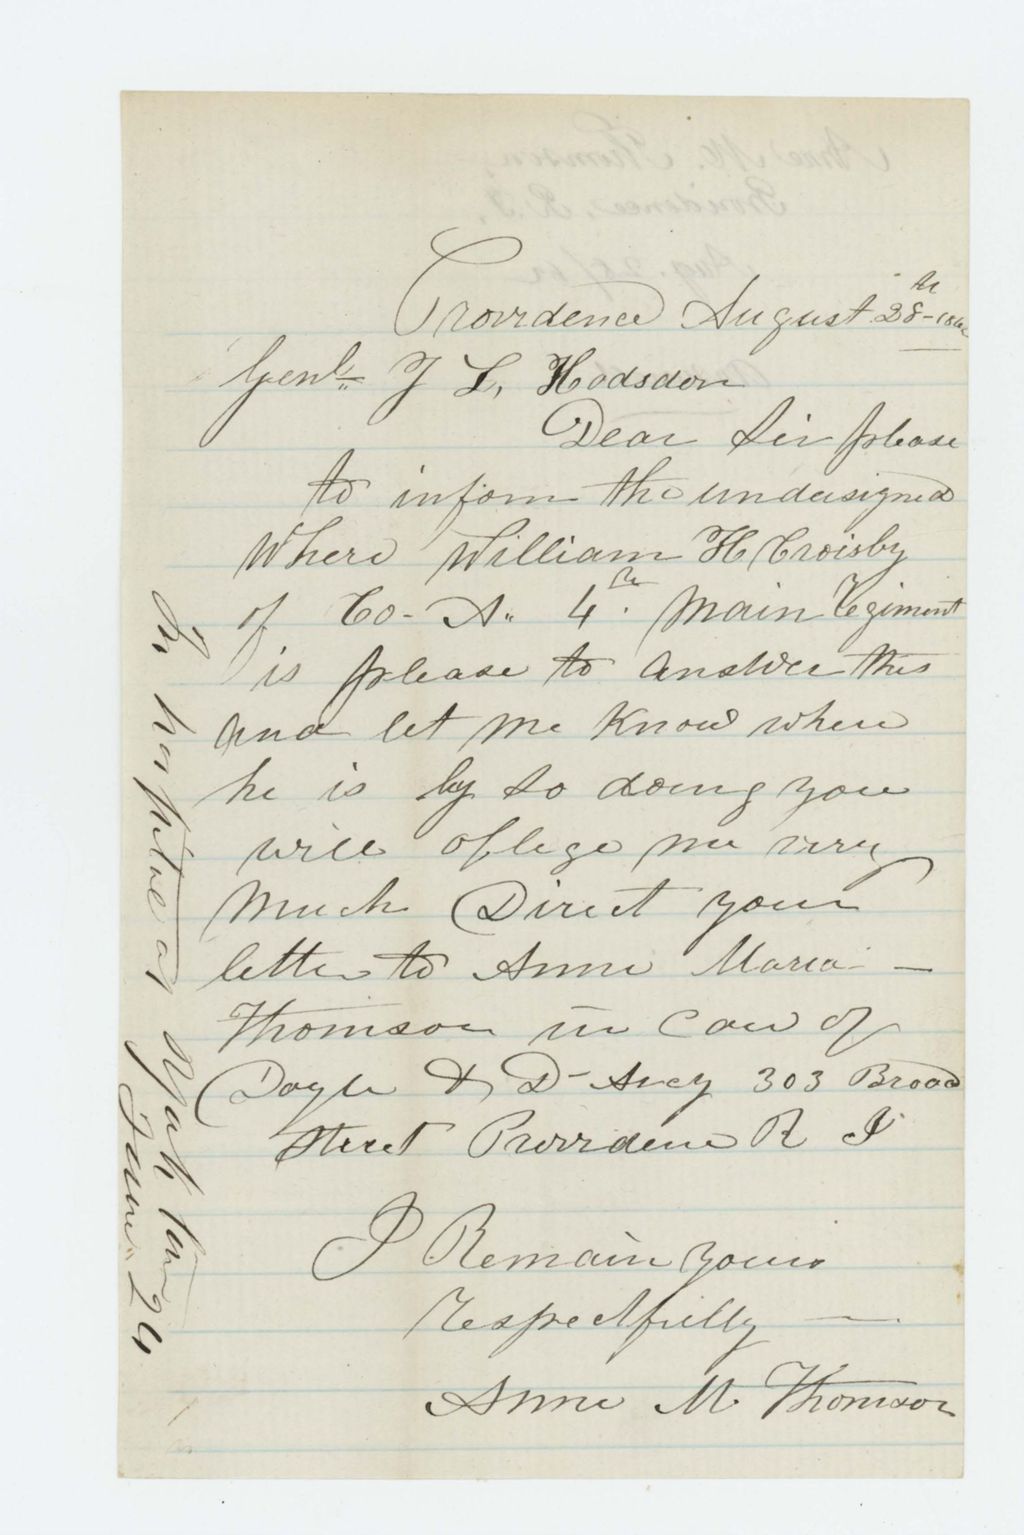 Providence August 28th - 1862
Genl. J L, Hodsdon
Dear Sir please
to inform the undersigned
Where William H Croisby
of Co - A. 4th. Main Regiment
is please to answer this
and let me Know where
he is by so doing you
will oblege me very
Much Direct your
letter to Anne Maria -
Thomson in Care of
Doyle & D- 303 Broad
Street Providence R I
I Remain yours
respectfully -
Anne M. Thomson
In hospital at Yorktown
June 26